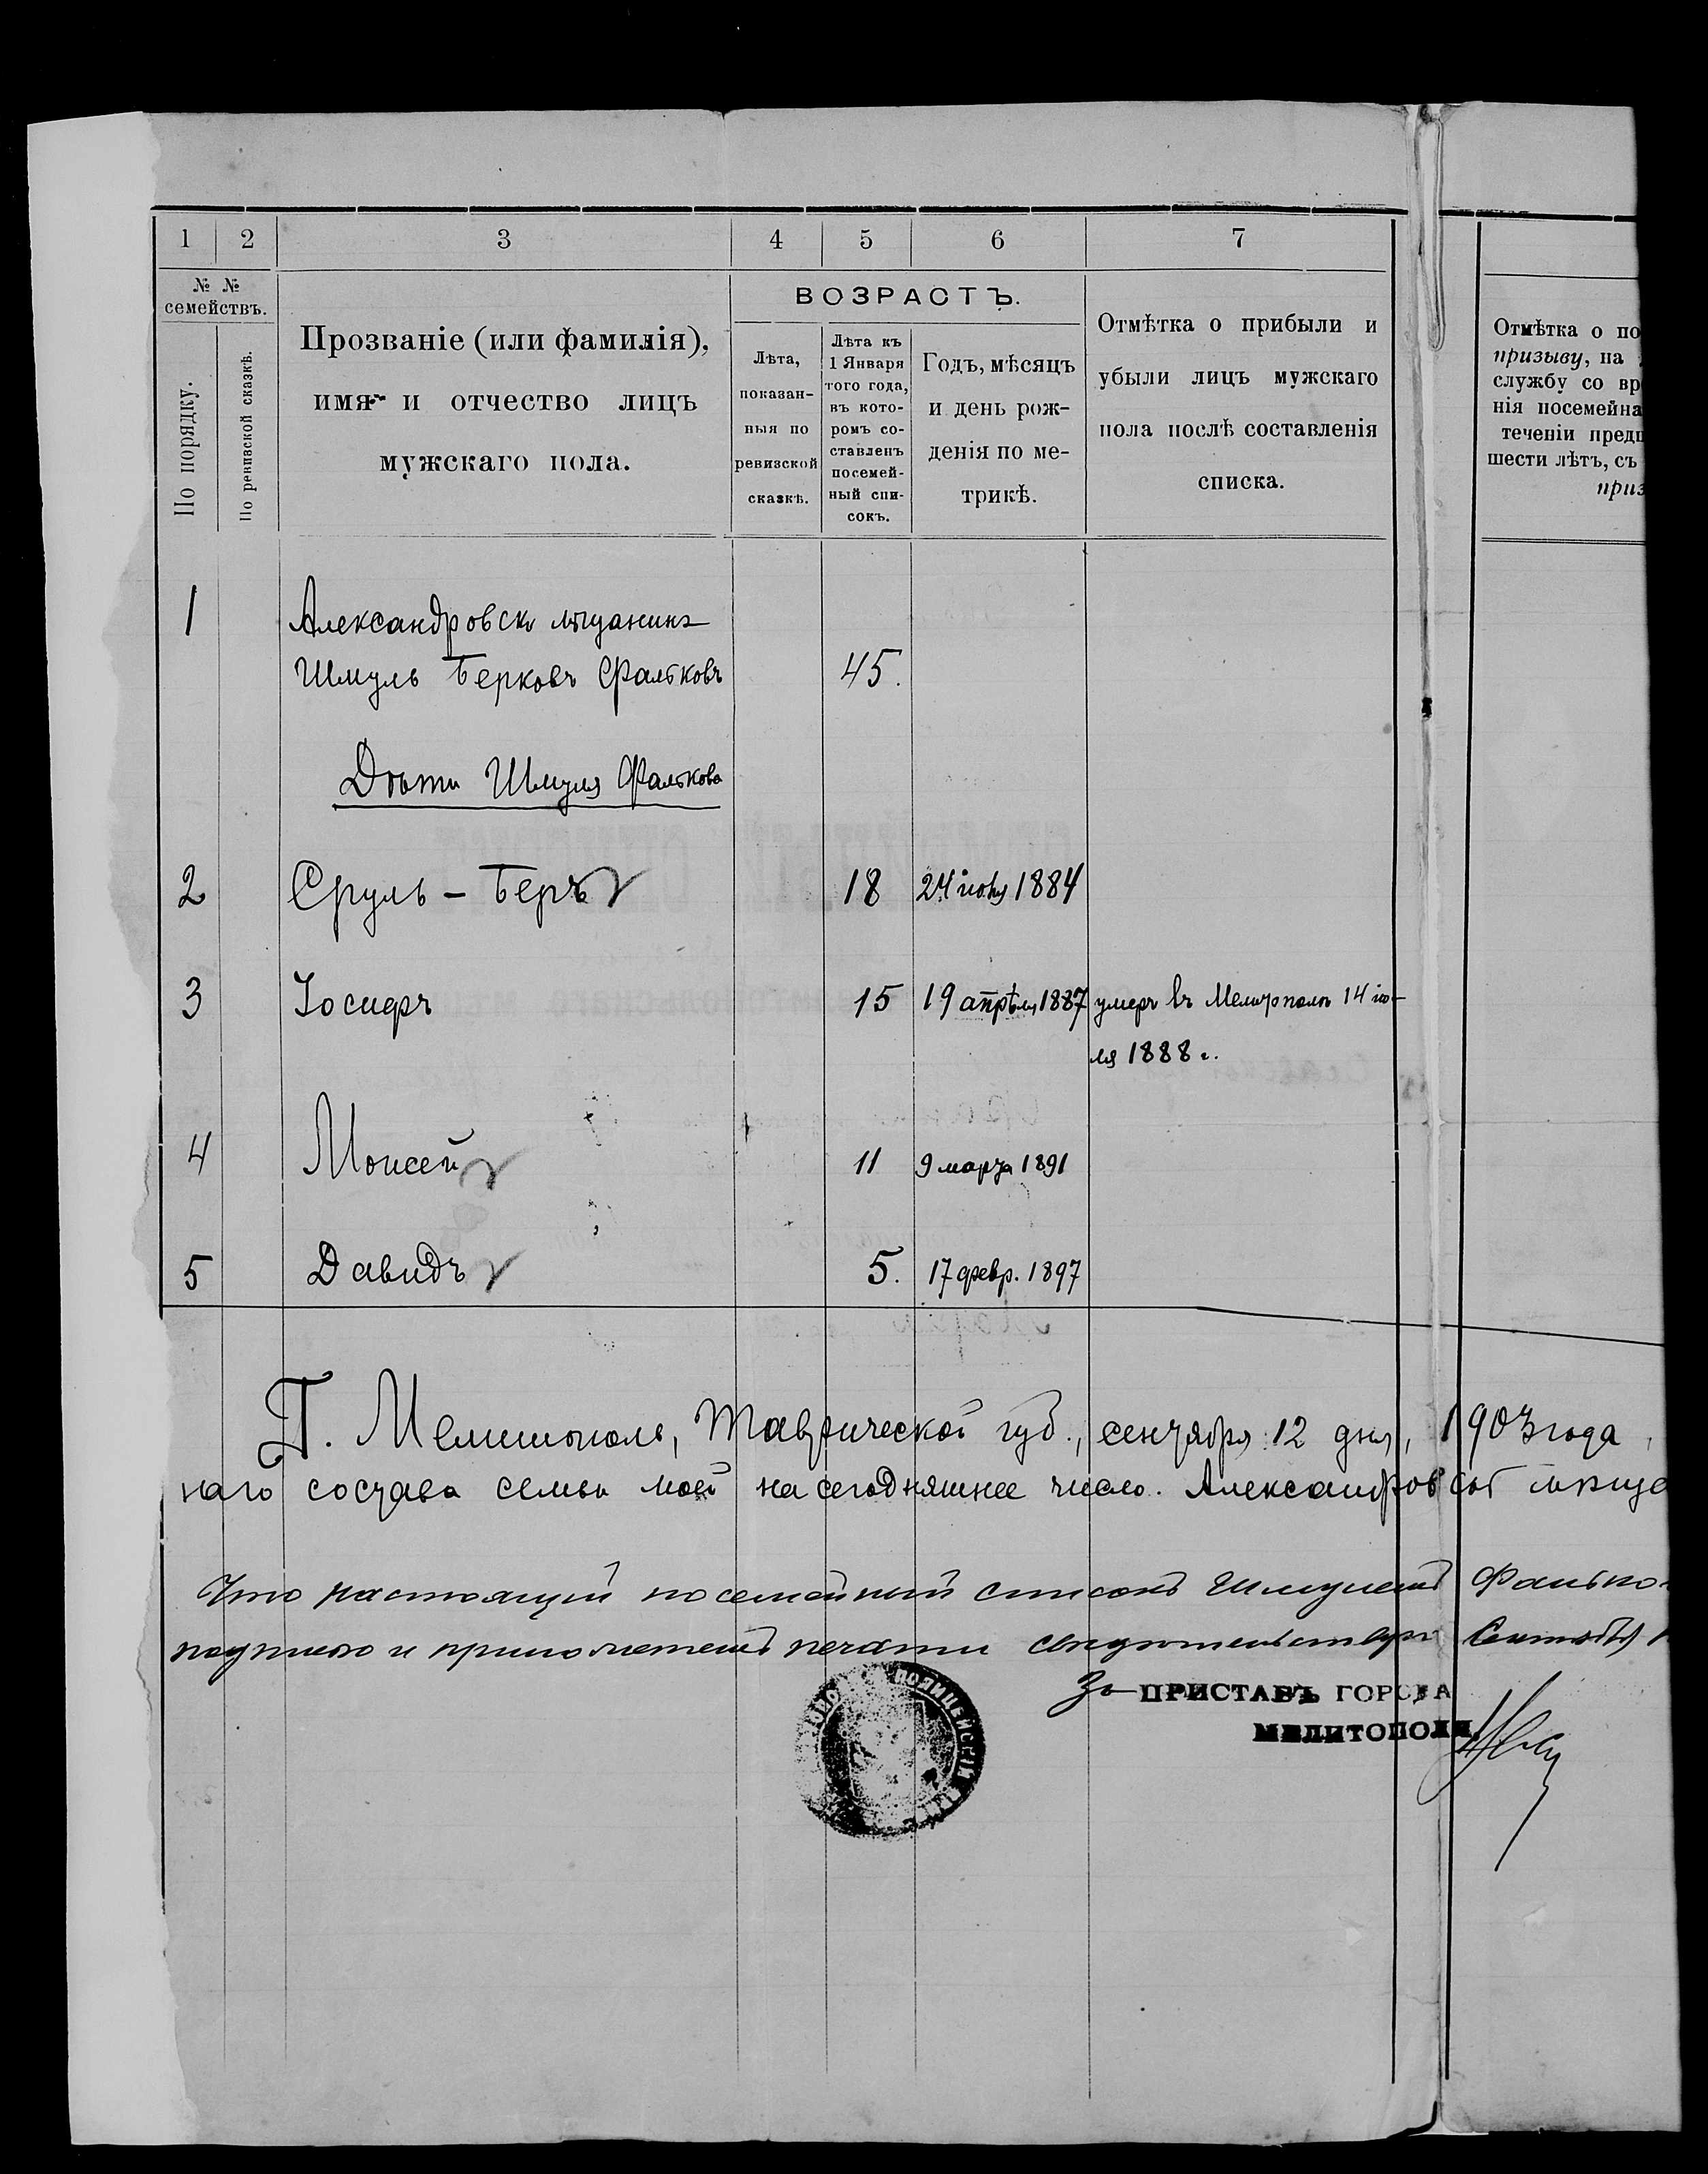 1 2 3 4 5 6 7
№ №
семействъ.
По порядку.
По ревизской сказкѣ.
Прозваніе (или фамилія),
имя и отчество лицъ
мужскаго пола.
ВОЗРАСТЪ.
Лѣта,
показан-
ныя по
ревизской
сказкѣ.
Лѣта къ
1 Января
того года,
въ кото-
ромъ со-
ставленъ
посемей-
ный спи-
сокъ.
Годъ, мѣсяцъ
и день рож-
денія по ме-
трикѣ.
Отмѣтка о прибыли и
убыли лицъ мужскаго
пола послѣ составленія
списка.
Отмѣтка о по
призыву, на
службу со вр
нія посемейна
теченіи предш
шести лѣтъ, съ
приз
1 Александровск мѣщанинъ
Шмуль Берковъ Фальковъ 45.
Дѣти Шмуля Фалькова
2 Сруль - Беръ 18 24 1884
3 Іосифъ 15 19 апрѣля 1887 умеръ въ Мелитополѣ 14 ію-
ля 1888 г.
4 Моисей 11 9 марта 1891
5 Давидъ 5. 17 февр. 1897
Г. Мелитополь, Таврической губ., сентября 12 дня, 1903 года
наго состава семьи моей на сегодняшнее число. Александровскій мѣща
Что настоящій посемейный списокъ Шмулемъ Фалько
подписью и приложеніемъ печати свидѣтельствую Сентября
За ПРИСТАВЪ ГОРОДА
МЕЛИТОПОЛЯ
ПОЛИЦЕЙСКІЙ